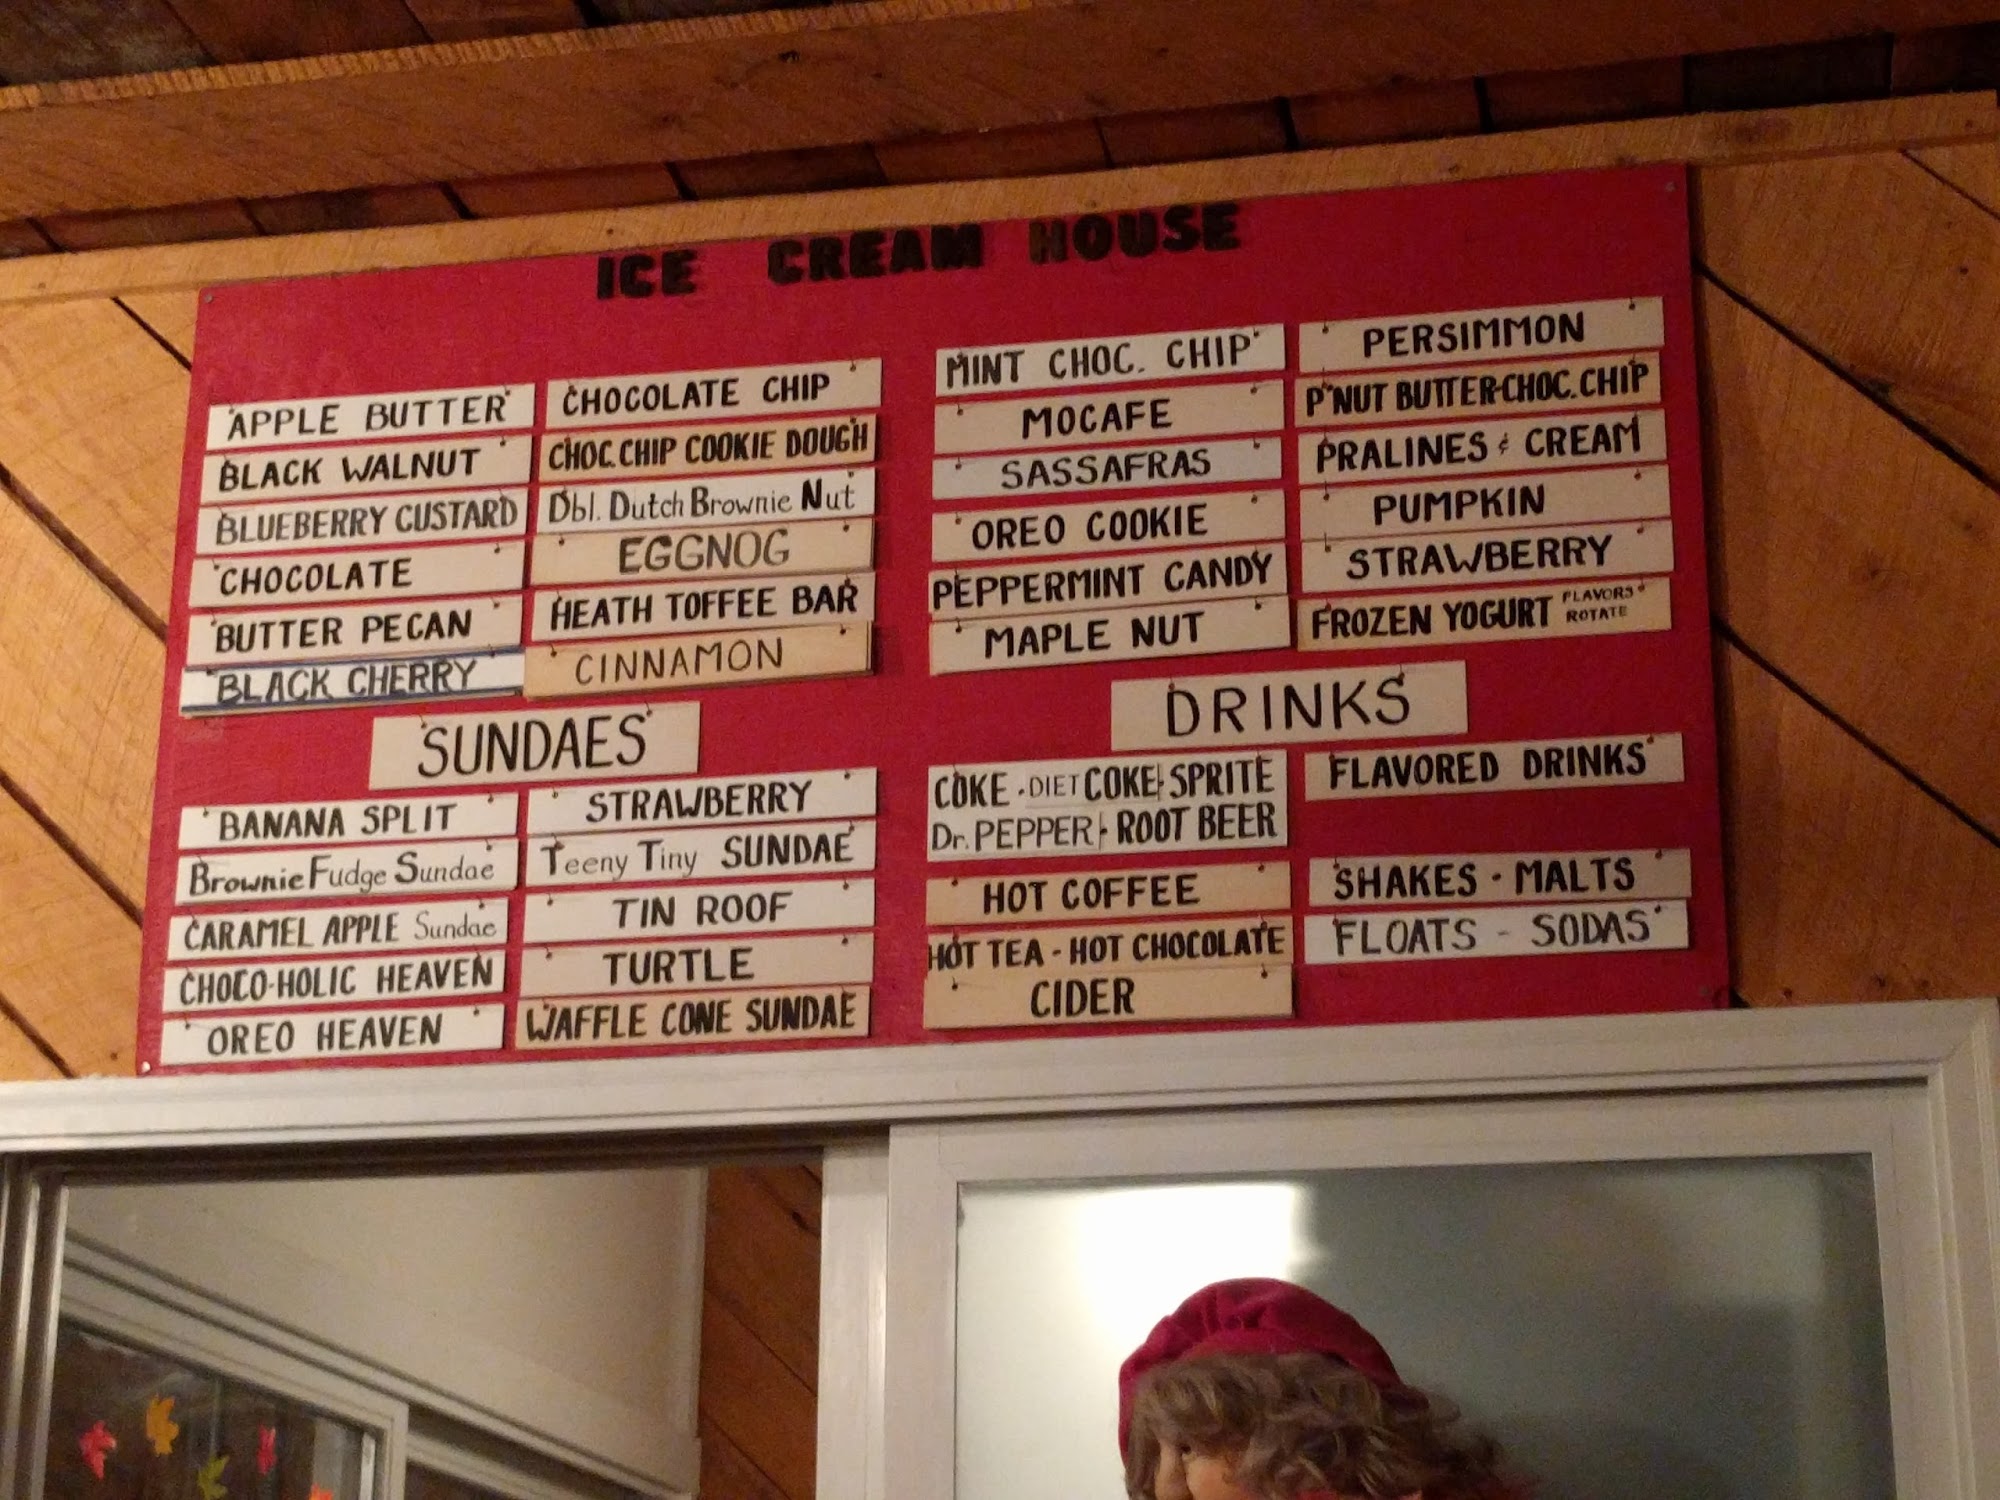 ICE CREAM HOUSE
APPLE BUTTER
BLACK WALNUT
BLUEBERRY CUSTARD
CHOCOLATE
BUTTER PECAN
BLACK CHERRY
CHOCOLATE CHIP
CHOC. CHIP COOKIE DOUGH
Dbl. Dutch Brownie Nut
EGGNOG
HEATH TOFFEE BAR
CINNAMON
MINT CHOC. CHIP
MOCAFE
SASSAFRAS
OREO COOKIE
PEPPERMINT CANDY
MAPLE NUT
PERSIMMON
P'NUT BUTTER-CHOC. CHIP
PRALINES & CREAM
PUMPKIN
STRAWBERRY
FROZEN YOGURT FLAVORS
ROTATE
SUNDAES
BANANA SPLIT
Brownie Fudge Sundae
CARAMEL APPLE Sundae
CHOCO-HOLIC HEAVEN
OREO HEAVEN
STRAWBERRY
Teeny Tiny SUNDAE
TIN ROOF
TURTLE
WAFFLE CONE SUNDAE
DRINKS
COKE - DIET COKE - SPRITE
Dr. PEPPER - ROOT BEER
HOT COFFEE
HOT TEA - HOT CHOCOLATE
CIDER
FLAVORED DRINKS
SHAKES - MALTS
FLOATS - SODAS